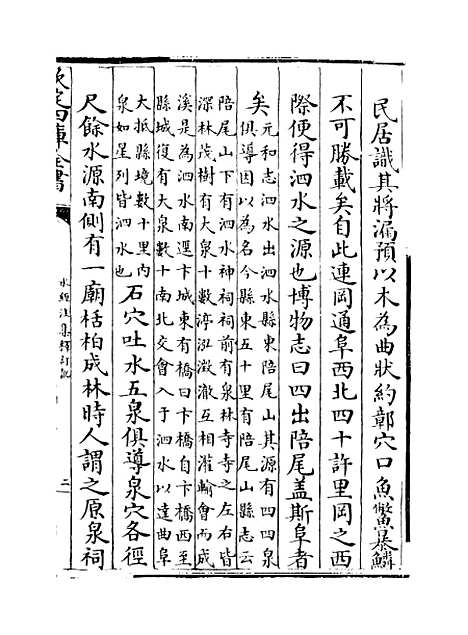 民居識其將漏預以木為曲狀約鄣穴口魚鱉暴鱗
不可勝載矣自此連岡通阜西北四十許里岡之西
際便得泗水之源也博物志曰四出陪尾蓋斯阜者
矣元和志泗水出泗水縣東陪尾山其源有四四泉
俱導因以為名今縣東五十里有陪尾山縣志云
陪尾山下有泗水神祠祠前有泉林寺寺之左右皆
深林茂樹有大泉十數渟泓澂澈互相灌輸會而成
溪是為泗水南逕卞城東有橋曰卞橋自卞橋西至
縣城復有大泉數十南北交會入于泗水以達曲阜
大抵縣境數十里内
泉如星列皆泗水也
石穴吐水五泉俱導泉穴各徑
尺餘水源南側有一廟栝柏成林時人謂之原泉祠
欽定四庫全書
水經注集釋訂訛